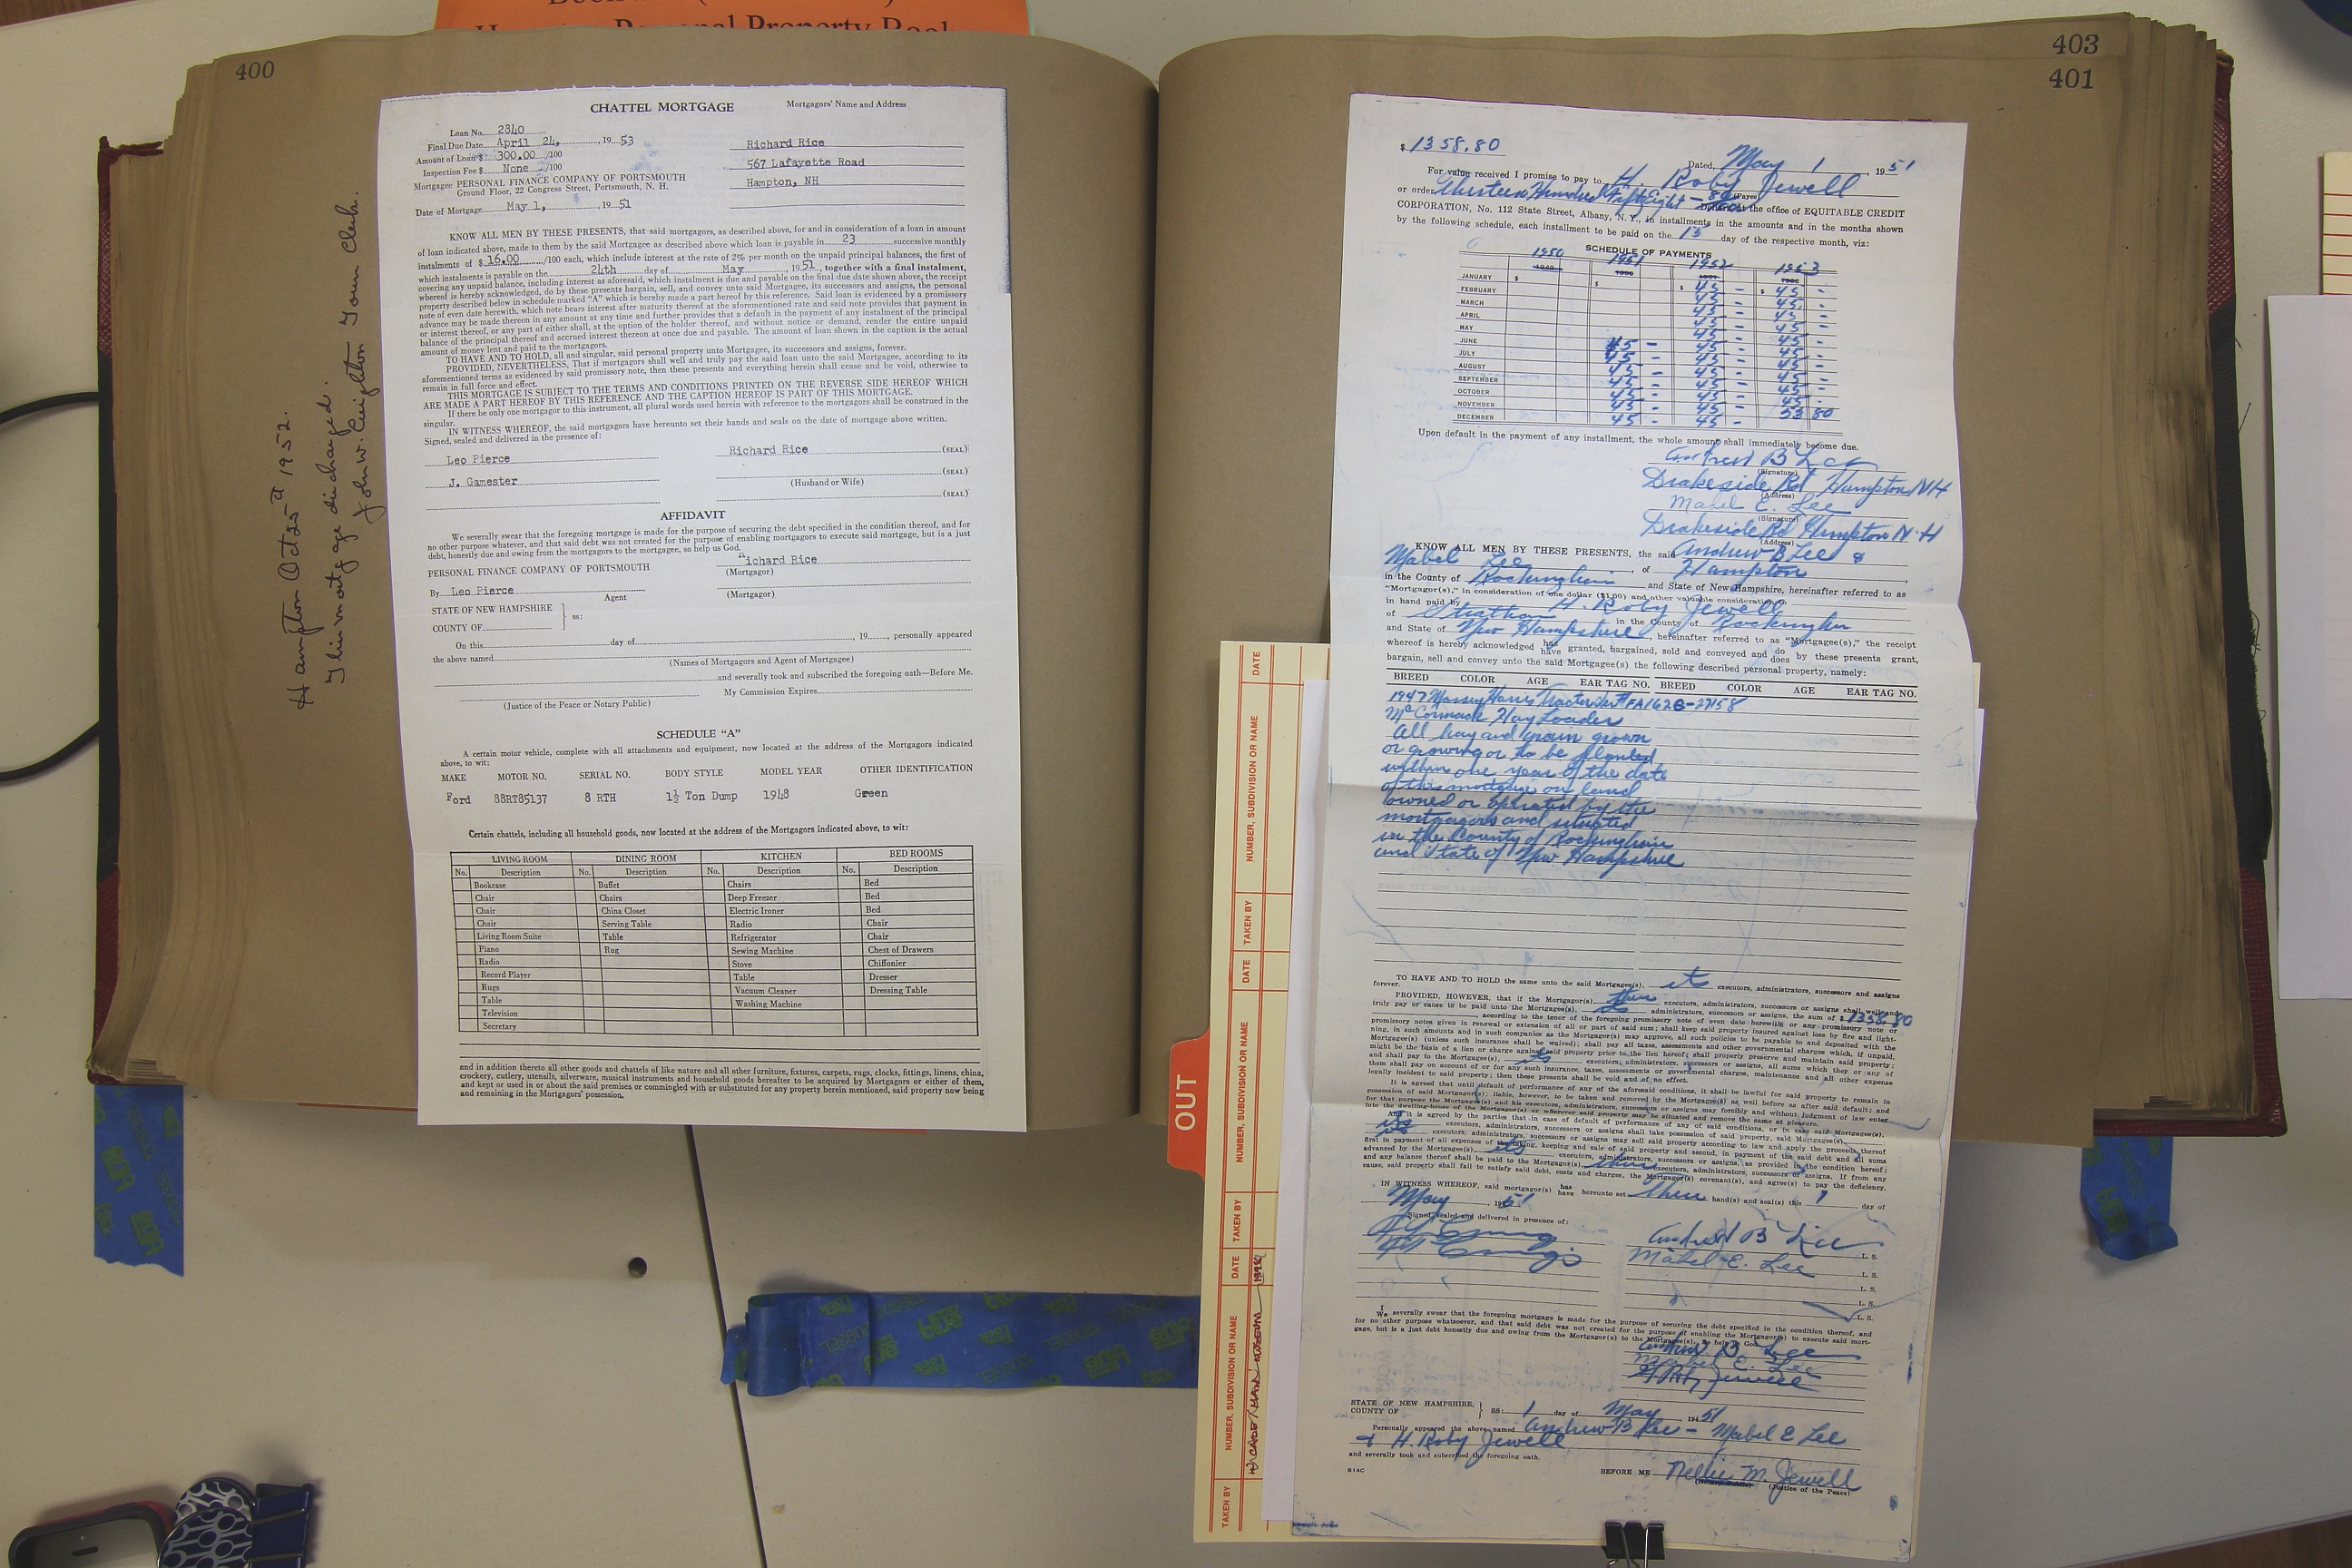 Personal Property Book
400
CHATTEL MORTGAGE
Mortgagors' Name and Address
Loan No. 2840
Final Due Date April 24, 1953
Amount of Loan $ 300.00 /100
Inspection Fee $ None /100
Mortgagee PERSONAL FINANCE COMPANY OF PORTSMOUTH
Ground Floor, 22 Congress Street, Portsmouth, N. H.
Date of Mortgage May 1, 1951
Richard Rice
567 Lafayette Road
Hampton, NH
KNOW ALL MEN BY THESE PRESENTS, that said mortgagors, as described above, for and in consideration of a loan in amount
of loan indicated above, made to them by the said Mortgagee as described above which loan is payable in 23 successive monthly
instalments of $ 16.00 /100 each, which include interest at the rate of 2% per month on the unpaid principal balances, the first of
which instalments is payable on the 24th day of May, 1951, together with a final instalment,
covering any unpaid balance, including interest as aforesaid, which instalment is due and payable on the final due date shown above, the receipt
whereof is hereby acknowledged, do by these presents bargain, sell, and convey unto said Mortgagee, its successors and assigns, the personal
property described below in schedule marked "A" which is hereby made a part hereof by this reference. Said loan is evidenced by a promissory
note of even date herewith, which note bears interest after maturity thereof at the aforementioned rate and said note provides that payment in
advance may be made thereon in any amount at any time and further provides that a default in the payment of any instalment of the principal
or interest thereof, or any part of either shall, at the option of the holder thereof, and without notice or demand, render the entire unpaid
balance of the principal thereof and accrued interest thereon at once due and payable. The amount of loan shown in the caption is the actual
amount of money lent and paid to the mortgagors.
TO HAVE AND TO HOLD, all and singular, said personal property unto Mortgagee, its successors and assigns, forever.
PROVIDED, NEVERTHELESS, That if mortgagors shall well and truly pay the said loan unto the said Mortgagee, according to its
aforementioned terms as evidenced by said promissory note, then these presents and everything herein shall cease and be void, otherwise to
remain in full force and effect.
THIS MORTGAGE IS SUBJECT TO THE TERMS AND CONDITIONS PRINTED ON THE REVERSE SIDE HEREOF WHICH
ARE MADE A PART HEREOF BY THIS REFERENCE AND THE CAPTION HEREOF IS PART OF THIS MORTGAGE.
If there be only one mortgagor to this instrument, all plural words used herein with reference to the mortgagors shall be construed in the
singular.
IN WITNESS WHEREOF, the said mortgagors have hereunto set their hands and seals on the date of mortgage above written.
Signed, sealed and delivered in the presence of:
Leo Pierce
Richard Rice (SEAL)
J. Gamester
(SEAL)
(Husband or Wife)
(SEAL)
AFFIDAVIT
We severally swear that the foregoing mortgage is made for the purpose of securing the debt specified in the condition thereof, and for
no other purpose whatever, and that said debt was not created for the purpose of enabling mortgagors to execute said mortgage, but is a just
debt, honestly due and owing from the mortgagors to the mortgagee, so help us God.
Richard Rice
PERSONAL FINANCE COMPANY OF PORTSMOUTH
(Mortgagor)
By Leo Pierce
Agent
(Mortgagor)
STATE OF NEW HAMPSHIRE
COUNTY OF
ss:
On this day of , 19 , personally appeared
the above named
(Names of Mortgagors and Agent of Mortgagee)
and severally took and subscribed the foregoing oath—Before Me.
My Commission Expires
(Justice of the Peace or Notary Public)
SCHEDULE "A"
A certain motor vehicle, complete with all attachments and equipment, now located at the address of the Mortgagors indicated
above, to wit:
MAKE MOTOR NO. SERIAL NO. BODY STYLE MODEL YEAR OTHER IDENTIFICATION
Ford 88RT85137 8 RTH 1½ Ton Dump 1948 Green
Certain chattels, including all household goods, now located at the address of the Mortgagors indicated above, to wit:
LIVING ROOM DINING ROOM KITCHEN BED ROOMS
No. Description No. Description No. Description No. Description
Bookcase Buffet Chairs Bed
Chair Chairs Deep Freezer Bed
Chair China Closet Electric Ironer Bed
Chair Serving Table Radio Chair
Living Room Suite Table Refrigerator Chair
Piano Rug Sewing Machine Chest of Drawers
Radio Stove Chiffonier
Record Player Table Dresser
Rugs Vacuum Cleaner Dressing Table
Table Washing Machine
Television
Secretary
and in addition thereto all other goods and chattels of like nature and all other furniture, fixtures, carpets, rugs, clocks, fittings, linens, china,
crockery, cutlery, utensils, silverware, musical instruments and household goods hereafter to be acquired by Mortgagors or either of them,
and kept or used in or about the said premises or commingled with or substituted for any property herein mentioned, said property now being
and remaining in the Mortgagors' possession.
Hampton Oct 25th 1952.
This mortgage discharged.
John W. Creighton Town Clerk.
403
401
$ 1358.80
Dated, May 1, 1951
For value received I promise to pay to H. Roby Jewell
(Payee)
or order Thirteen Hundred Fifty Eight - 80 Dollars at the office of EQUITABLE CREDIT
CORPORATION, No. 112 State Street, Albany, N. Y., in installments in the amounts and in the months shown
by the following schedule, each installment to be paid on the 13 day of the respective month, viz:
SCHEDULE OF PAYMENTS
1950 1951 1952 1953
JANUARY $ $ $ 45 - $ 45 -
FEBRUARY 45 - 45 -
MARCH 45 - 45 -
APRIL 45 - 45 -
MAY 45 - 45 -
JUNE 45 - 45 - 45 -
JULY 45 - 45 - 45 -
AUGUST 45 - 45 - 45 -
SEPTEMBER 45 - 45 - 45 -
OCTOBER 45 - 45 - 45 -
NOVEMBER 45 - 45 - 45 -
DECEMBER 45 - 45 - 53 80
Upon default in the payment of any installment, the whole amount shall immediately become due.
Andrew B Lee
(Signature)
Drakeside Rd Hampton NH
(Address)
Mabel E. Lee
(Signature)
Drakeside Rd Hampton N.H
(Address)
KNOW ALL MEN BY THESE PRESENTS, the said Andrew B Lee &
Mabel Lee, of Hampton
in the County of Rockingham and State of New Hampshire, hereinafter referred to as
"Mortgagor(s)," in consideration of one dollar ($1.00) and other valuable consideration
in hand paid by H. Roby Jewell
of Stratham in the County of Rockingham
and State of New Hampshire, hereinafter referred to as "Mortgagee(s)," the receipt
whereof is hereby acknowledged has have granted, bargained, sold and conveyed and do does by these presents grant,
bargain, sell and convey unto the said Mortgagee(s) the following described personal property, namely:
BREED COLOR AGE EAR TAG NO. BREED COLOR AGE EAR TAG NO.
1947 Massey Harris Tractor Ser# FA162G-27158
McCormack Hay Loader
All hay and grain grown
or growing or to be planted
within one year of the date
of this mortgage on land
owned or operated by the
mortgagors and situated
in the County of Rockingham
and State of New Hampshire
TO HAVE AND TO HOLD the same unto the said Mortgagee(s), its executors, administrators, successors and assigns
forever.
PROVIDED, HOWEVER, that if the Mortgagor(s), their executors, administrators, successors or assigns shall well and
truly pay or cause to be paid unto the Mortgagee(s), its executors, administrators, successors or assigns, the sum of $ 1358.80
, according to the tenor of the foregoing promissory note of even date herewith or any promissory note or
promissory notes given in renewal or extension of all or part of said sum; shall keep said property insured against loss by fire and light-
ning, in such amounts and in such companies as the Mortgagor(s) may approve, all such policies to be payable to and deposited with the
Mortgagee(s) (unless such insurance shall be waived); shall pay all taxes, assessments and other governmental charges which, if unpaid,
might be the basis of a lien or charge against said property prior to the lien hereof; shall properly preserve and maintain said property;
and shall pay to the Mortgagee(s), its executors, administrators, successors or assigns, all sums which they or any of
them shall pay on account of or for any such insurance, taxes, assessments or governmental charges, maintenance and all other expense
legally incident to said property; then these presents shall be void and of no effect.
It is agreed that until default of performance of any of the aforesaid conditions, it shall be lawful for said property to remain in
possession of said Mortgagor(s); liable, however, to be taken and removed by the Mortgagee(s) as well before as after said default; and
for that purpose the Mortgagee(s) and his executors, administrators, successors or assigns may forcibly and without judgment of law enter
into the dwelling-house of the Mortgagor(s) or wherever said property may be situated and remove the same at pleasure.
And it is agreed by the parties that in case of default of performance of any of said conditions, or in case said Mortgagee(s),
its executors, administrators, successors or assigns shall take possession of said property, said Mortgagee(s),
its executors, administrators, successors or assigns may sell said property according to law and apply the proceeds thereof
first in payment of all expenses of the taking, keeping and sale of said property and second, in payment of the said debt and all sums
advanced by the Mortgagee(s), its executors, administrators, successors or assigns, as provided in the condition hereof;
and any balance thereof shall be paid to the Mortgagor(s), their executors, administrators, successors or assigns. If from any
cause, said property shall fail to satisfy said debt, costs and charges, the Mortgagor(s) covenant(s), and agree(s) to pay the deficiency.
IN WITNESS WHEREOF, said mortgagor(s) has have hereunto set their hand(s) and seal(s) this 1 day of
May, 1951
Signed, sealed and delivered in presence of:
Andrew B Lee L. S.
Mabel E. Lee L. S.
L. S.
L. S.
L. S.
I
We severally swear that the foregoing mortgage is made for the purpose of securing the debt specified in the condition thereof, and
for no other purpose whatsoever, and that said debt was not created for the purpose of enabling the Mortgagor(s) to execute said mort-
gage, but is a just debt honestly due and owing from the Mortgagor(s) to the Mortgagee(s), so help God.
Andrew B. Lee
Mabel E. Lee
H Roby Jewell
STATE OF NEW HAMPSHIRE,
COUNTY OF
SS: 1 day of May 1951
Personally appeared the above named Andrew B Lee - Mabel E Lee
& H. Roby Jewell
and severally took and subscribed the foregoing oath.
S14C
BEFORE ME Nellie M. Jewell
(Notary Public) (Justice of the Peace)
OUT
NUMBER, SUBDIVISION OR NAME
TAKEN BY
DATE
NUMBER, SUBDIVISION OR NAME
TAKEN BY
DATE
NUMBER, SUBDIVISION OR NAME
TAKEN BY
DATE